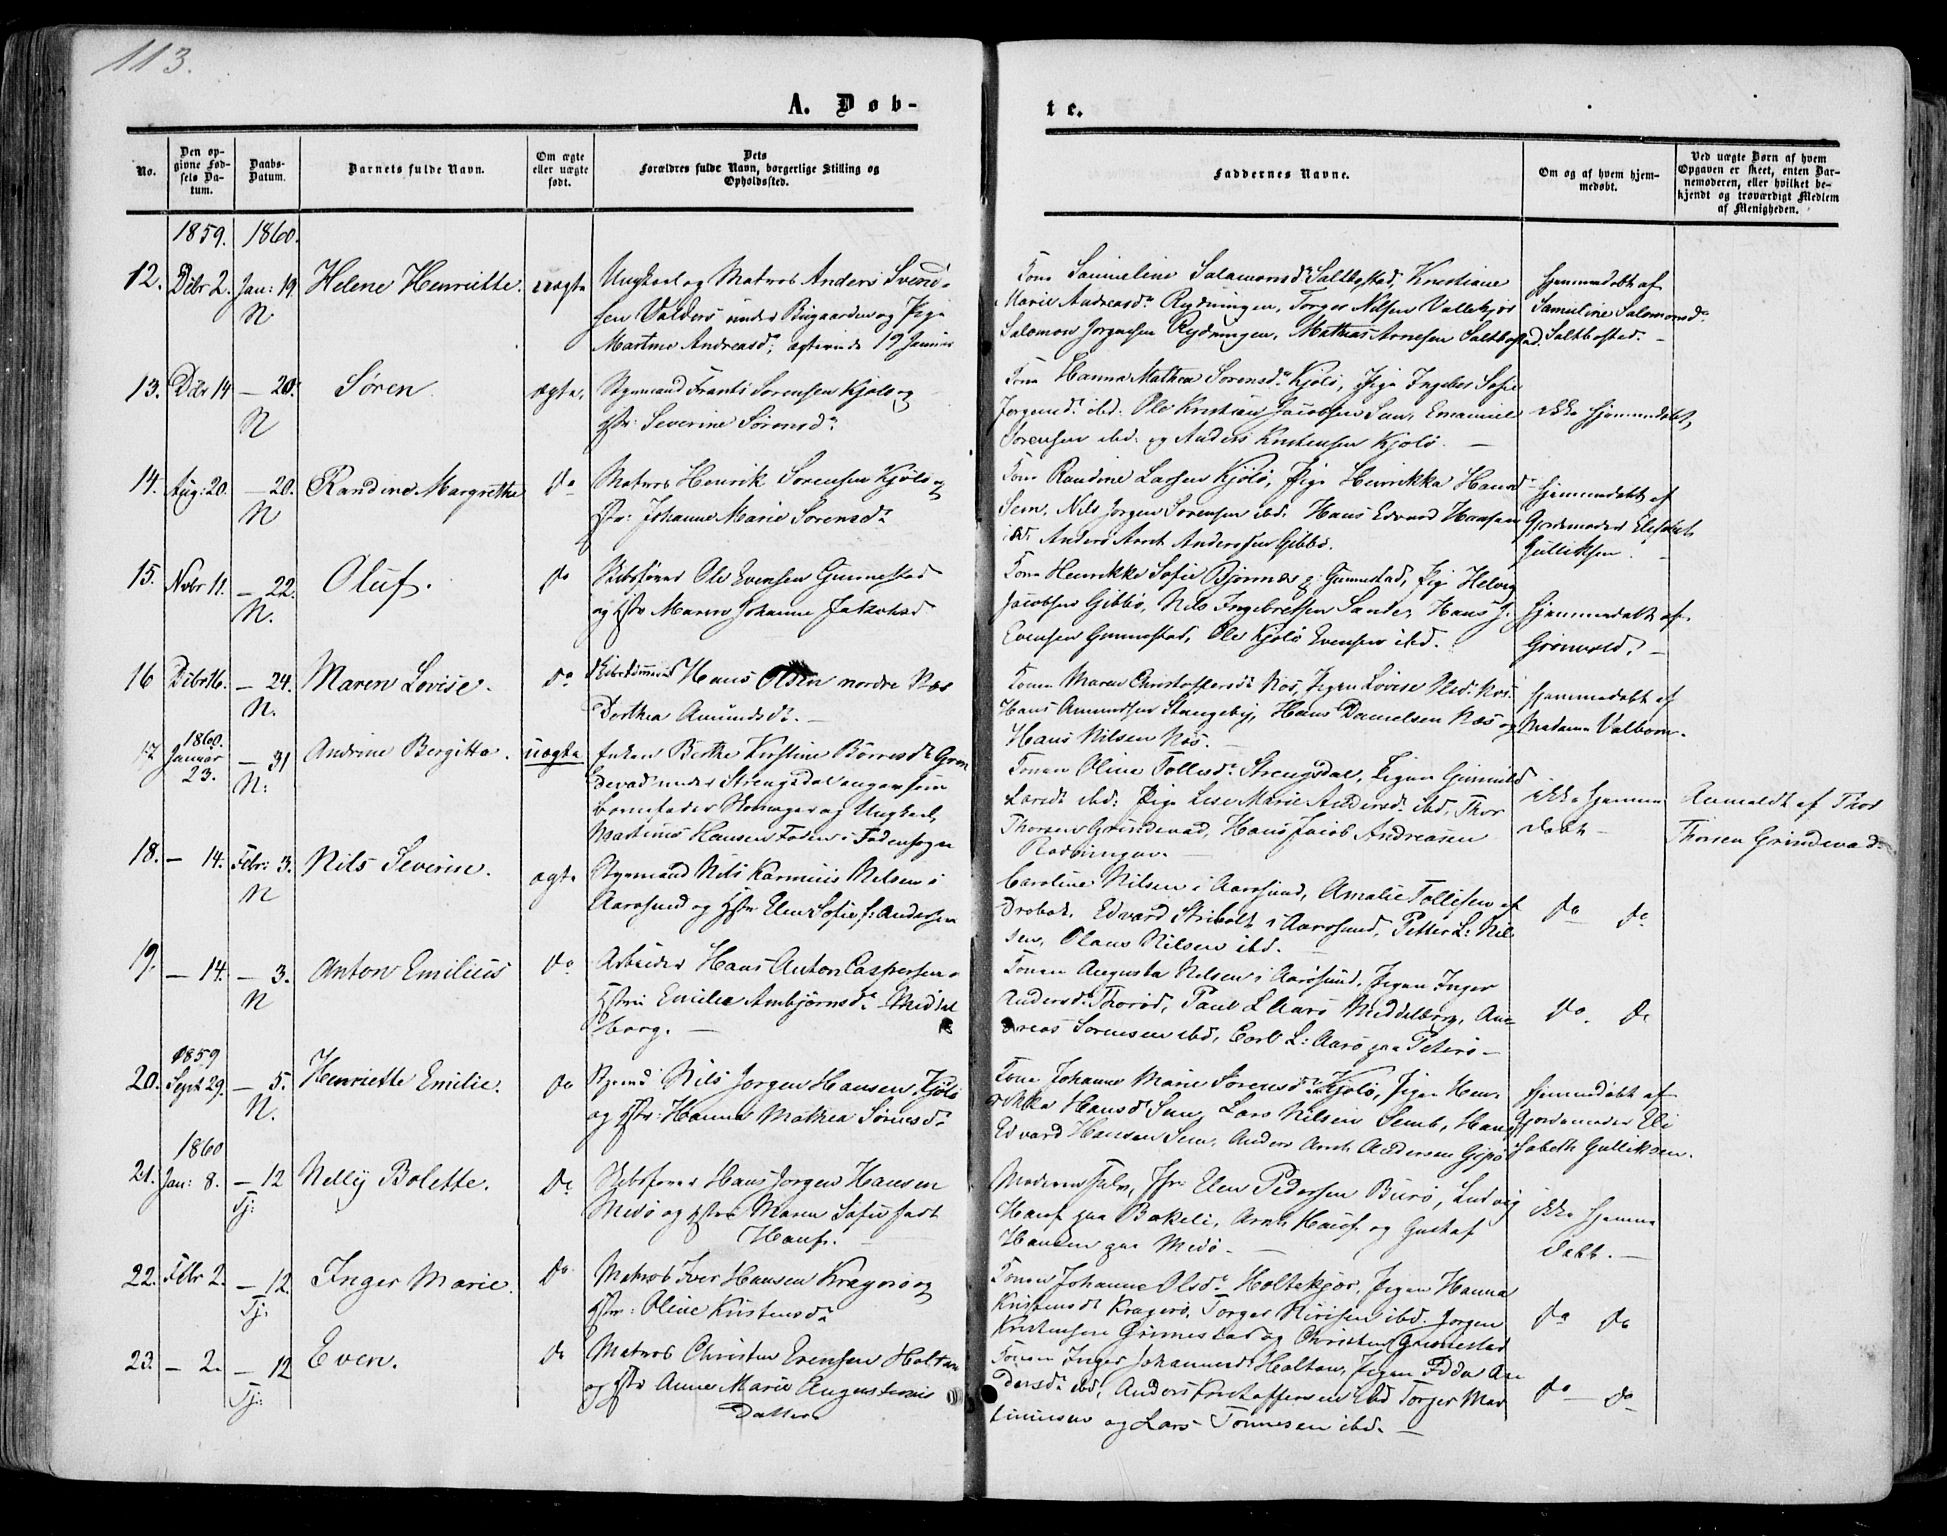 113.
A. Døb-
te.
No.
Den op-
givne Fød-
sels Da-
tum.
Daabs-
Datum.
Barnets fulde Navn.
Om ægte
eller uægte
født.
Dets
Forældres fulde Navn, borgerlige Stilling og
Opholdssted.
Faddernes Navne.
Om og af hvem hjem-
medøbt.
Ved uægte Børn af hvem
Opgaven er skeet, enten Bar-
nemoderen, eller hvilket be-
kjendt og troværdigt Medlem
af Menigheden.
1859. 1860.
12. Dcbr 2. Jan: 19. N Helene Henriette. uægte
Ungkarl og Matros Anders Svend-
sen Valders under Biugaarden og Pige
Martine Andreasd:, 19 Januar
Kone Samueline Salamonsd: Saltbostad, Kristiane
Marie Andreasd: Rydningen, Torger Nilsen Vallekjær
Salomon Jørgensen Rydningen, Mathias Arnesen Saltbostad.
hjemmedøbt af
Samueline Salomonsd:
Saltbosted. -
13. Dcbr 14 - 20. N Søren. ægte.
Styrmand Frants Sørensen Kjølø og
Hstr: Severine Sørensd:
Kone Hanna Mathea Sørensd: Kjølø, Pige Ingebor Sofie
Jørgensd: ibd: Ole Kristian Jacobsen Sem, Emanuel
Sørensen ibd: og Anders Kristensen Kjølø. -
ikke hjemmedøbt,
14. Aug: 20. - 20. N Randine Margrethe do
Matros Henrik Sørensen Kjølø og
Hstr: Johanne Marie Sørensd:
Kone Randine Larsen Kjølø, Pige Henrikka Hansd:
Sem, Nils Jørgen Sørensen ibd. Hans Edvard Hansen
ibd. Anders Arnt Andersen Gibbø.
hjemmedøbt af
Gjordemoder Elisabet
Gulliksen. -
15. Nvbr 11. - 22. N. Oluf. do
Skibsfører Ole Evensen Gunnestad
og Hstr Maren Johanne Jakobsd
Kone Henrikke Sofie Bjørnæs p: Gunnestad, Pige Helvig
Jacobsen Gibbø, Nils Ingebretsen Sande, Hans J.
Evensen Gunnestad, Ole Kjølø Evensen ibd.
hjemmedøbt af
Grønvold. -
16 Dcbr 16. - 24. N. Maren Lovise. do
Skibstømmermd Hans Olsen nordre Næs
Dorthea Amundsd:. -
Konen Maren Christoffersd: Næs, Pigen Lovise Nilsd. Næs.
Hans Amundsen Stangeby, Hans Danielsen Næs og
Hans Nilsen Næs. -
hjemmedøbt af
Madame Valbom.
17. 1860. Januar 23. - 31 N: Andrine Bergitte. uægte
Enken Berthe Kirstine Børresd: Grin
devad under Strengsdal angav som
Barnefader Skomager og Ungkarl,
Martinus Hansen Foden i Fodensogn
Konen Oline Tollefsd: Strengsdal, Pigen Gunnild
Larsd: ibd: Pige Lise Marie Andersd: ibd, Thor
Thorsen Grindevad, Hans Jacob Andreasen
Rødningen. -
ikke hjemme
døbt -
Anmeldt af Thor
Thorsen Grindevad.
18. - 14. Febr: 3. N Nils Severin. ægte
Styrmand Nils Karinius Nilsen i
Aarøsund og Hstr Elen Sofie f: Andersen
Caroline Nilsen i Aarøsund, Amalie Tollefsen af
Drøbak, Edvard Stribolt i Aarøsund, Petter L: Nil-
sen, Olaus Nilsen ibd. -
do do
19. - 14. - 3. N Anton Emilius do
Arbeider Hans Anton Caspersen -
Hstru Emilie Arnbjørnsd: Middel
borg. -
Konen Augusta Nilsen i Aarøsund, Pigen Inger
Andersd: Thorød, Paul L Aarø Middelborg, An-
dreas Sørensen ibd, Carl L: Aarø paa Peterø -
do. do
20. 1859 Sept 29. - 5. N. Henriette Emilie. do
Styrmd Nils Jørgen Hansen Kjølø
og Hstr: Hanna Mathea Sørensd:
Kone Johanne Marie Sørensd: Kjølø, Pigen Hen-
rikka Hansd Sem, Lars Nilsen Semb, Hans
Edvard Hansen Sem, Anders Arnt Andersen Gipø
hjemmedøbt af
Gjordemoder Eli
sabeth Gulliksen.
21. 1860 Jan: 8. - 12 Tj: Nelly Bolette. do
Skibsfører Hans Jørgen Hansen
Medø og Hstru Maren Sofie født
Hauf. -
Moderen selv, Jfr: Elen Pedersen Burø, Ludvig
Hauf paa Bakeli, Arnt Hauf og Gustaf
Hansen paa Medø -
ikke hjemme
døbt. -
22. Febr 2. - 12. Tj: Inger Marie. do
Matros Iver Hansen Kragerø og
Hstr: Oline Kristensd:
Konen Johanne Olsd: Holtekjær, Pigen Hanna
Kristensd: Kragerø, Torger Iversen ibd. Jørgen
Kristensen Grimestad og Christen Grimestad
do do
23. - 2. - 12 Tj: Even. do
Matros Christen Evensen Holtan
og Hstr Anne Marie Augustinus
Datter
Konen Inger Johannesd: Holtan, Pigen Edda An
dersd: ibd, Anders Kristoffersen ibd Torger Mar
tinnisen og Lars Tønnesen ibd. -
do - do